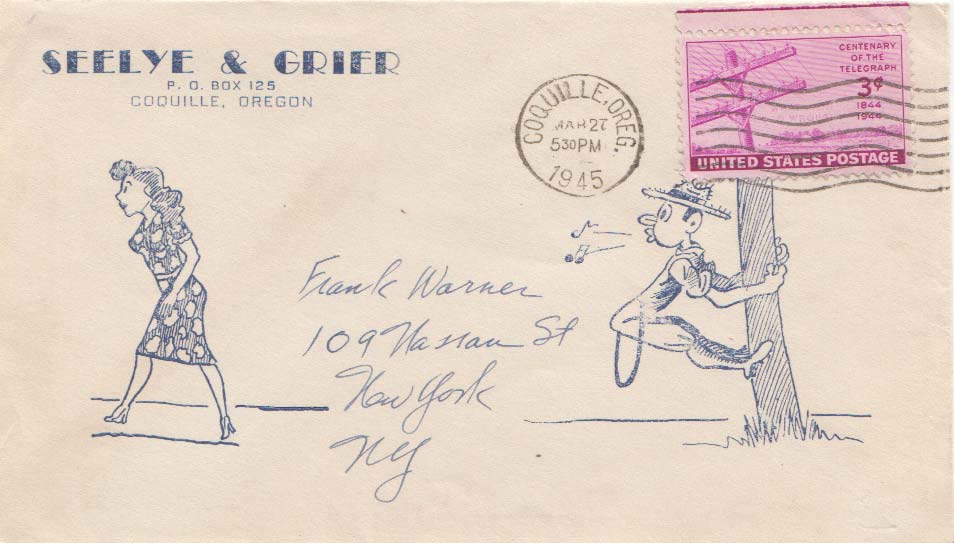 SEELYE & GRIER
P. O. BOX 125
COQUILLE, OREGON
COQUILLE, OREG.
MAR 27
530PM
1945
CENTENARY
OF THE
TELEGRAPH
3¢
1844
1944
UNITED STATES POSTAGE
Frank Warner
109 Nassau St
New York
NY